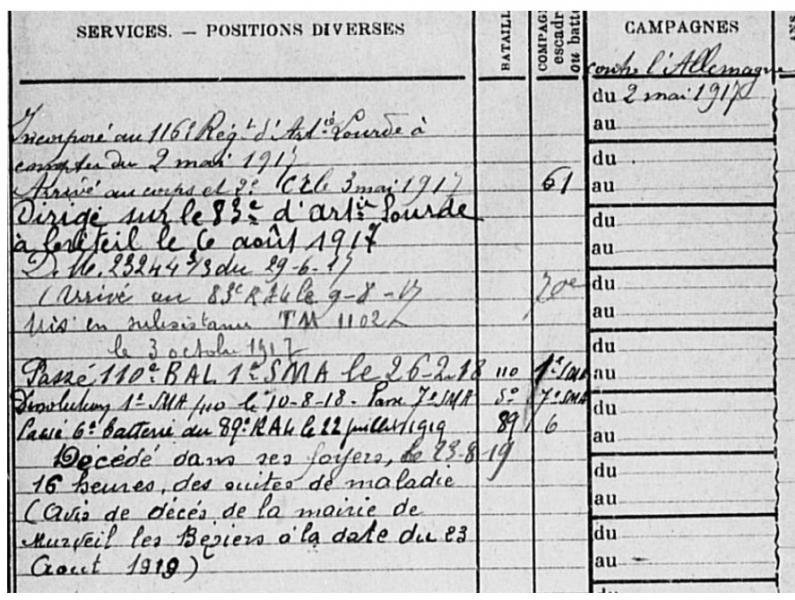 SERVICES. — POSITIONS DIVERSES
BATAILL
COMPAG
escadr
ou batte
CAMPAGNES
ANS
contre l'Allemagne
du 2 mai 1917
au
Incorporé au 116e Régt d'Artie Lourde à
compter du 2 mai 1917
du
Arrivé au corps et 2e le 3 mai 1917 61
au
Dirigé sur le 83e d'artie lourde
du
à le 6 août 1917
au
D. Mle 23244 3/3 du 29-6-17
(Arrivé au 83e RAL le 9-8-17 70e
du
Mis en subsistance TM 1102
au
le 3 octobre 1917
du
Passé 110e BAL 1e SMA le 26-2-18 110 1e SMA
au
Dissolution 1e SMA /110 le 10-8-18. Passé 7e SMA 7e SMA
du
Passé 6e Batterie du 89e RAL le 22 juillet 1919 89 6
au
Décédé dans ses foyers, le 23-8-19
du
16 heures, des suites de maladie
au
(Avis de décès de la mairie de
du
Murveil les Béziers à la date du 23
au
Aout 1919)
du